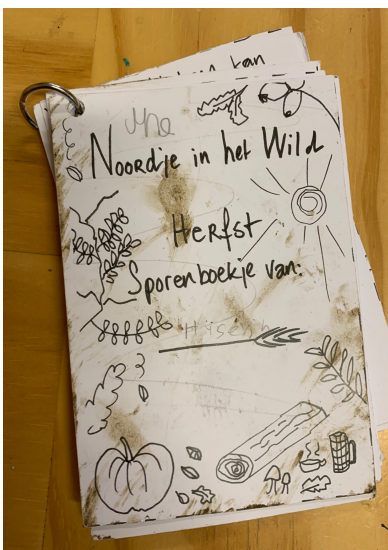 kan
Noordje in het Wild
Herfst
Sporenboekje van: